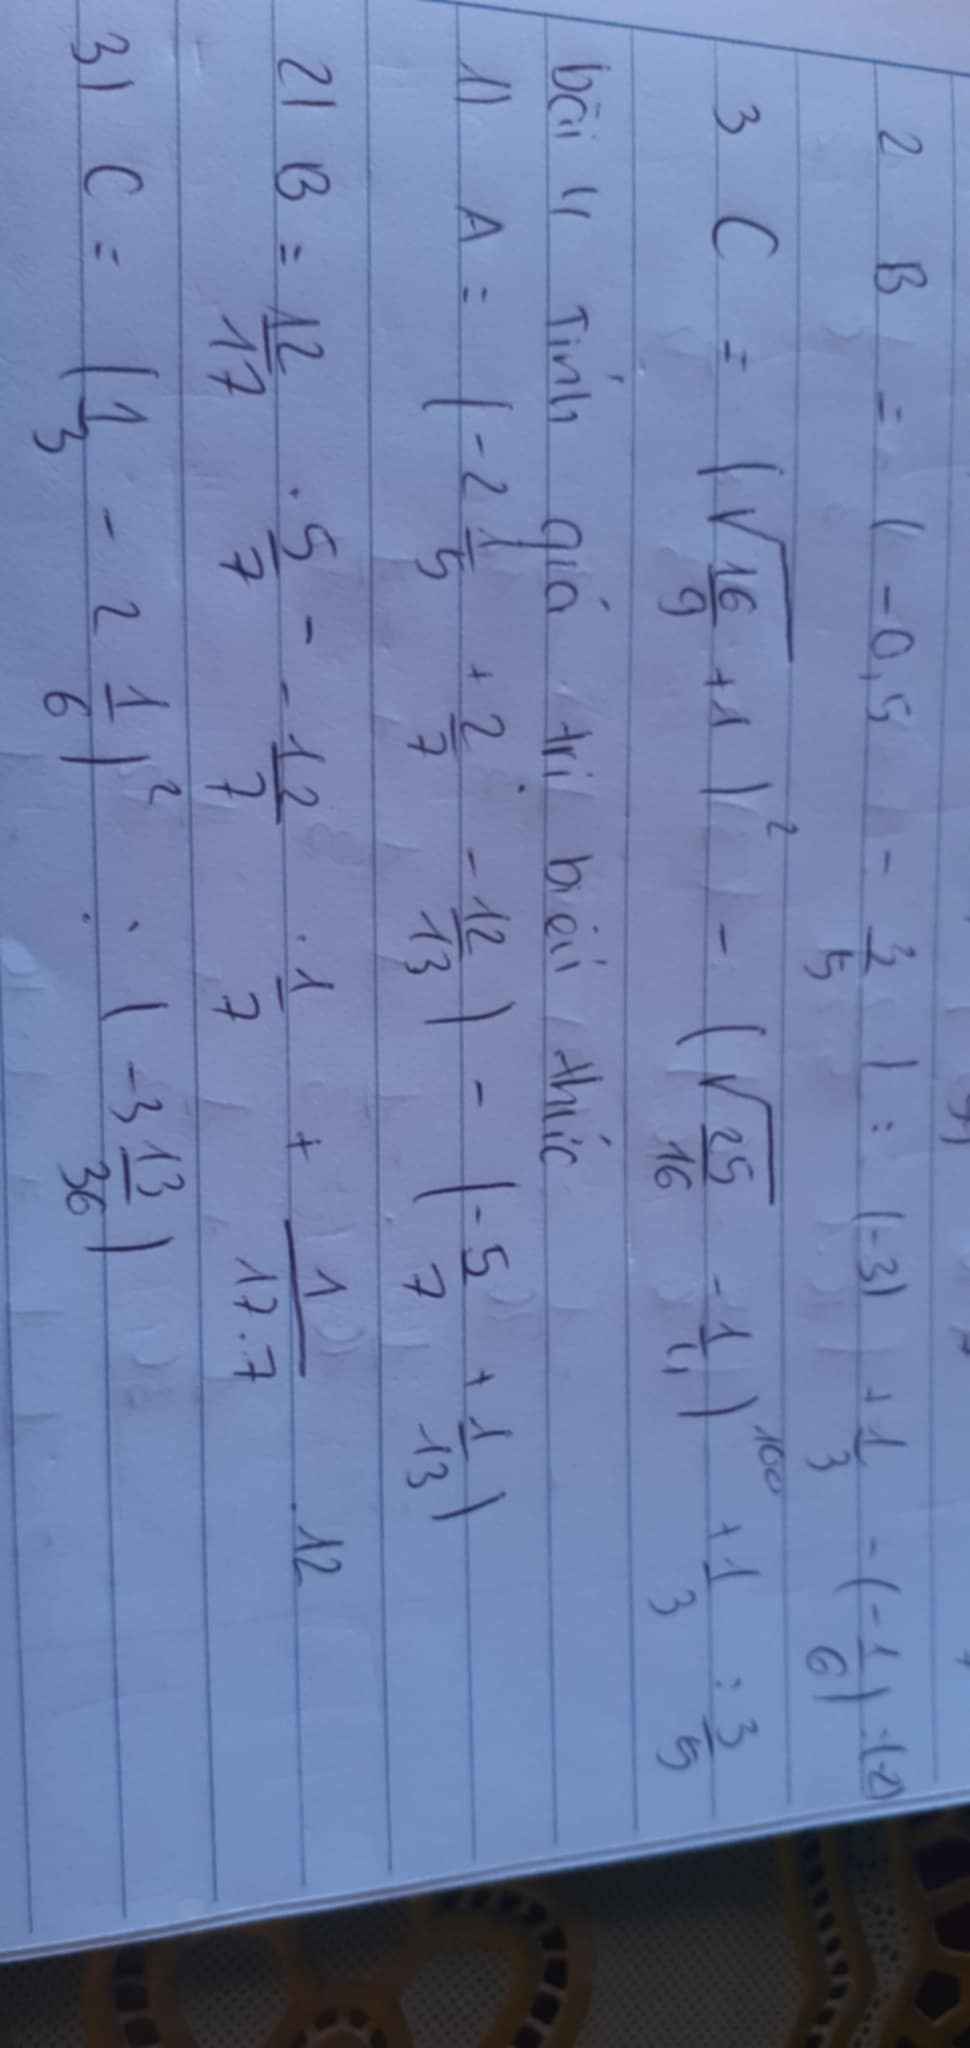 2 B = ( -0,5 - 3/5 ) : (-3) + 1/3 - (-1/6) : (-2)
3 C = (√16/9 + 1)² - (√25/16 - 1/4)¹⁰⁰ + 1/3 : 3/5
bài 4 Tính giá trị biểu thức
1) A = (-2 1/5 + 2/7 - 12/13) - (-5/7 + 1/13)
2) B = 12/17 . 5/7 - -12/7 . 1/7 + 1/17.7 . 12
3) C = (1/3 - 2 1/6)² : (-3 13/36)